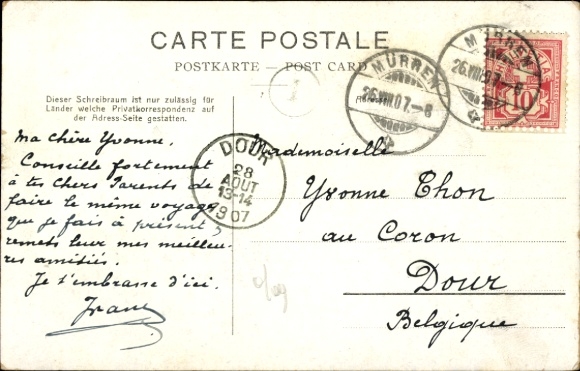 CARTE POSTALE
POSTKARTE — POST CARD
Dieser Schreibraum ist nur zulässig für
Länder welche Privatkorrespondenz auf
der Adress-Seite gestatten.
MÜRREN
26.VIII.07.-8
MÜRREN
26.VIII.07.-8
10
DOUR
28
AOUT
13-14
1907
Ma chère Yvonne.
Conseille fortement
à tes chers Parents de
faire le même voyage
que je fais à présent,
remets leur mes meilleu-
res amitiés.
Je t'embrasse d'ici.
Mademoiselle
Yvonne Thon
au Coron
Dour
Belgique